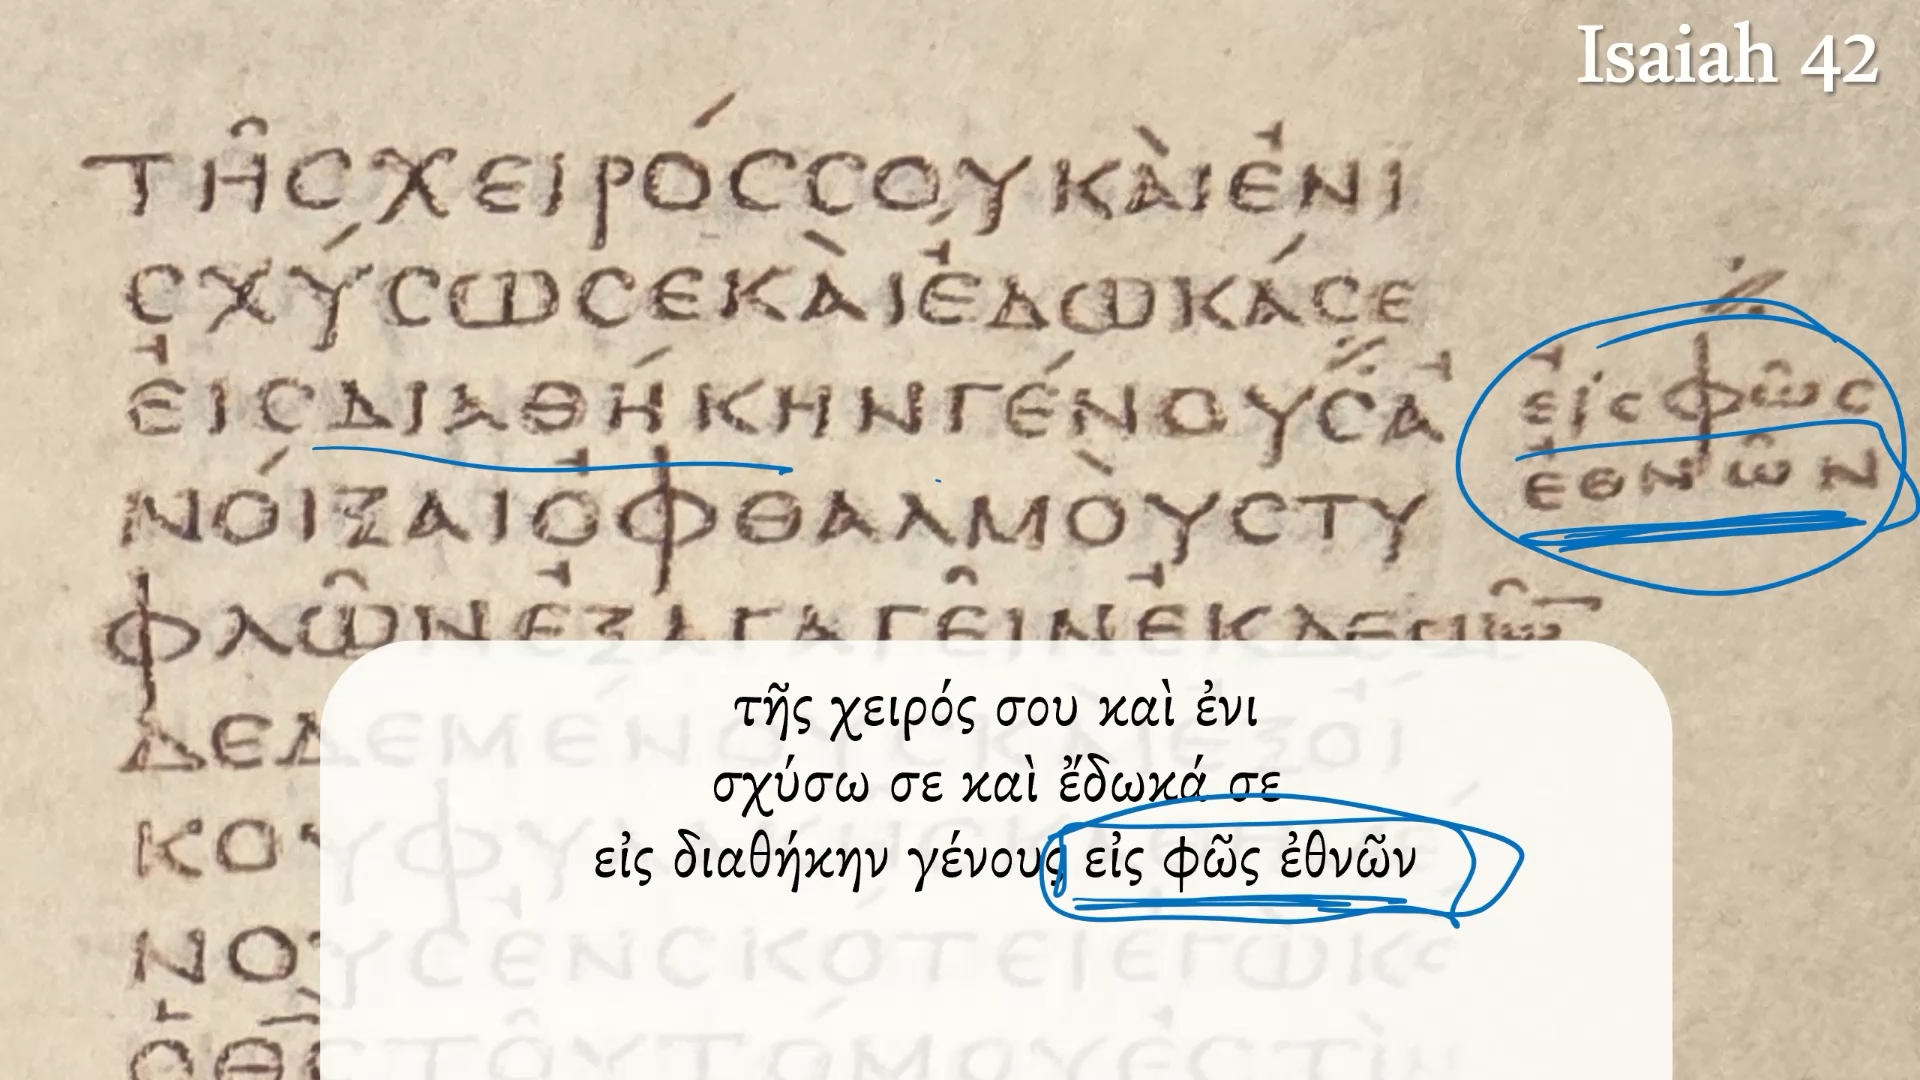 Isaiah 42
ΤΗ͂CΧΕΙΡΌCCΟΥΚᾺΙἘΝΙ
CΧΎCΩCΕΚᾺΙἘΔΩΚΆCΕ
ἘΙCΔΙΑΘΉΚΗΝΓΈΝΟΥCἈ
ἐιςφῶς
ἐθνῶν
ΝΌΙΞΑΙὈΦΘΑΛΜῸΥCΤΥ
ΦΛΩ͂ΝἘΞΑΓΑΓΕ͂ΙΝἘΚΔΕCΜΩ͂
τῆς χειρός σου καὶ ἐνι
σχύσω σε καὶ ἔδωκά σε
εἰς διαθήκην γένους εἰς φῶς ἐθνῶν